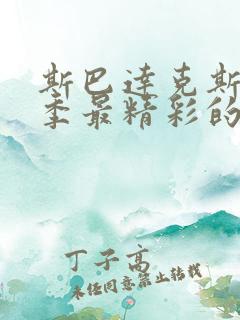 斯巴达克斯
季最精彩的
丁子高
未经同意禁止转载